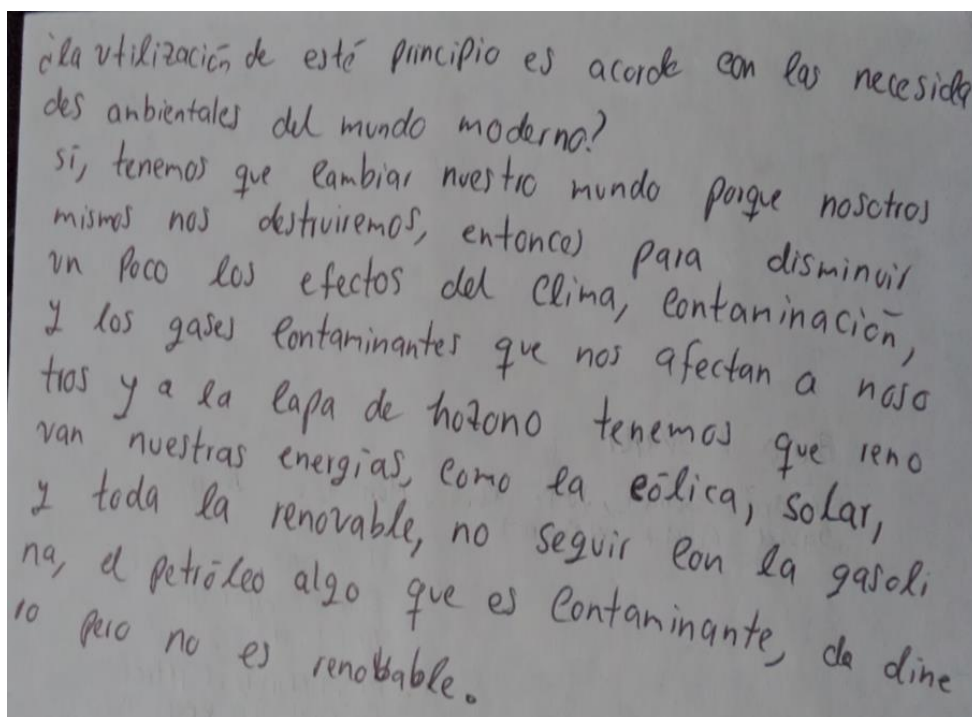 ¿la utilización de esté principio es acorde con las necesida
des anbientales del mundo moderno?
sí, tenemos que cambiar nuestro mundo porque nosotros
mismos nos destruiremos, entonces para disminuir
un poco los efectos del clima, contaminación,
y los gases contaminantes que nos afectan a noso
tros y a la capa de hozono tenemos que reno
van nuestras energías, como la eólica, solar,
y toda la renovable, no seguir con la gasoli
na, el petróleo algo que es contaminante, da dine
ro pero no es renobable.